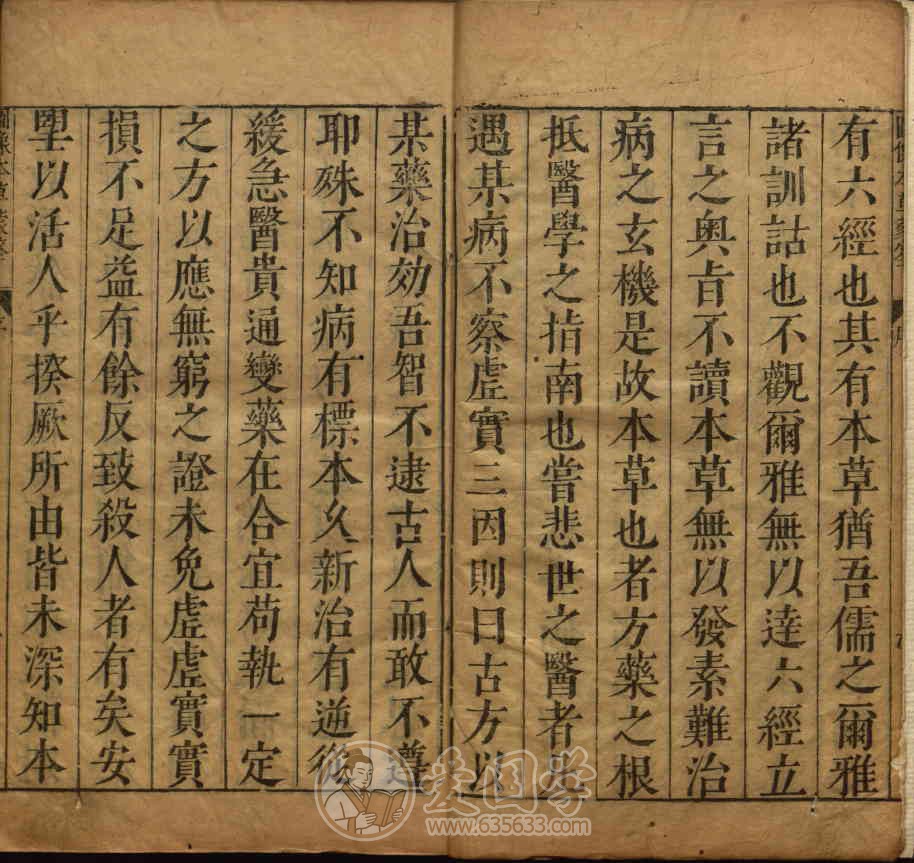 有六經也其有本草猶吾儒之爾雅
諸訓詁也不觀爾雅無以達六經立
言之奥旨不讀本草無以發素難治
病之玄機是故本草也者方藥之根
抵醫學之指南也嘗悲世之醫者夫
遇某病不察虛實三因則曰古方以
某藥治効吾智不逮古人而敢不遵
耶殊不知病有標本久新治有逆從
緩急醫貴通變藥在合宜苟執一定
之方以應無窮之證未免虛虛實實
損不足益有餘反致殺人者有矣安
望以活人乎揆厥所由皆未深知本
www.635633.com